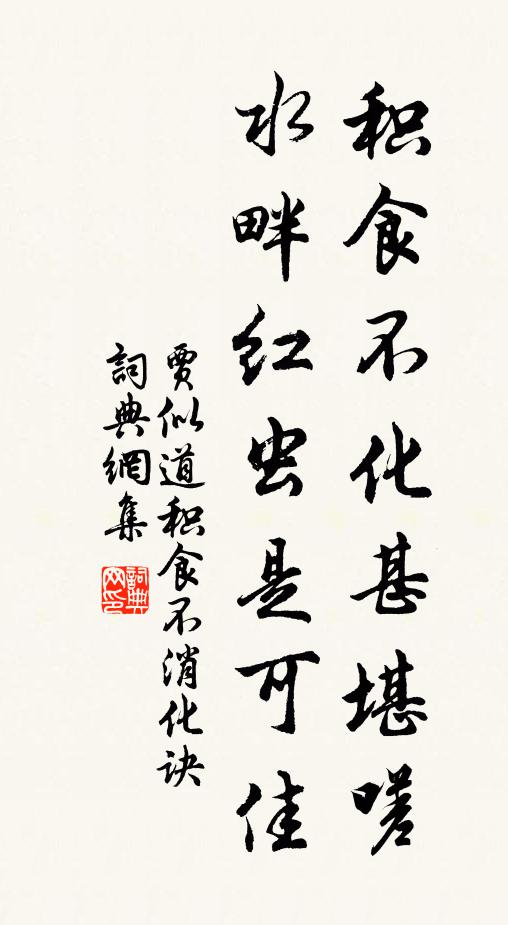 积食不化甚堪嗟
水畔红虫是可佳
贾似道积食不消化诀
詞典網集
詞典
网印